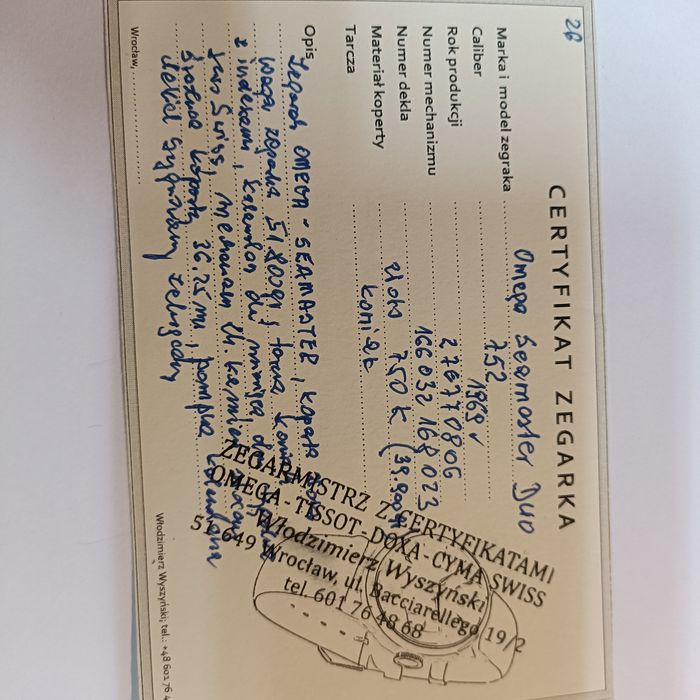 26
CERTYFIKAT ZEGARKA
Marka i model zegraka Omega Seamaster Duo
Caliber 752
Rok produkcji 1969 r
Numer mechanizmu 27677080
Numer dekla 166032 168 023
Materiał koperty złoto 750 k
Tarcza koniak
Opis Zegarek OMEGA - SEAMASTER, koperta
Waga zegarka 51,800gr, tarcza koniak
z indeksami, kalendarz dni miesiąca
Swiss, mechanizm 24 kamienie
Średnica koperty 36,25 mm, pompka
dekiel sygnowany
Wrocław,
Włodzimierz Wyszyński; tel.: +48 601 76 4
ZEGARMISTRZ Z CERTYFIKATAMI
OMEGA-TISSOT-DOXA-CYMA SWISS
Włodzimierz Wyszyński
51-649 Wrocław, ul. Bacciarellego 19/2
tel. 601 76 48 68